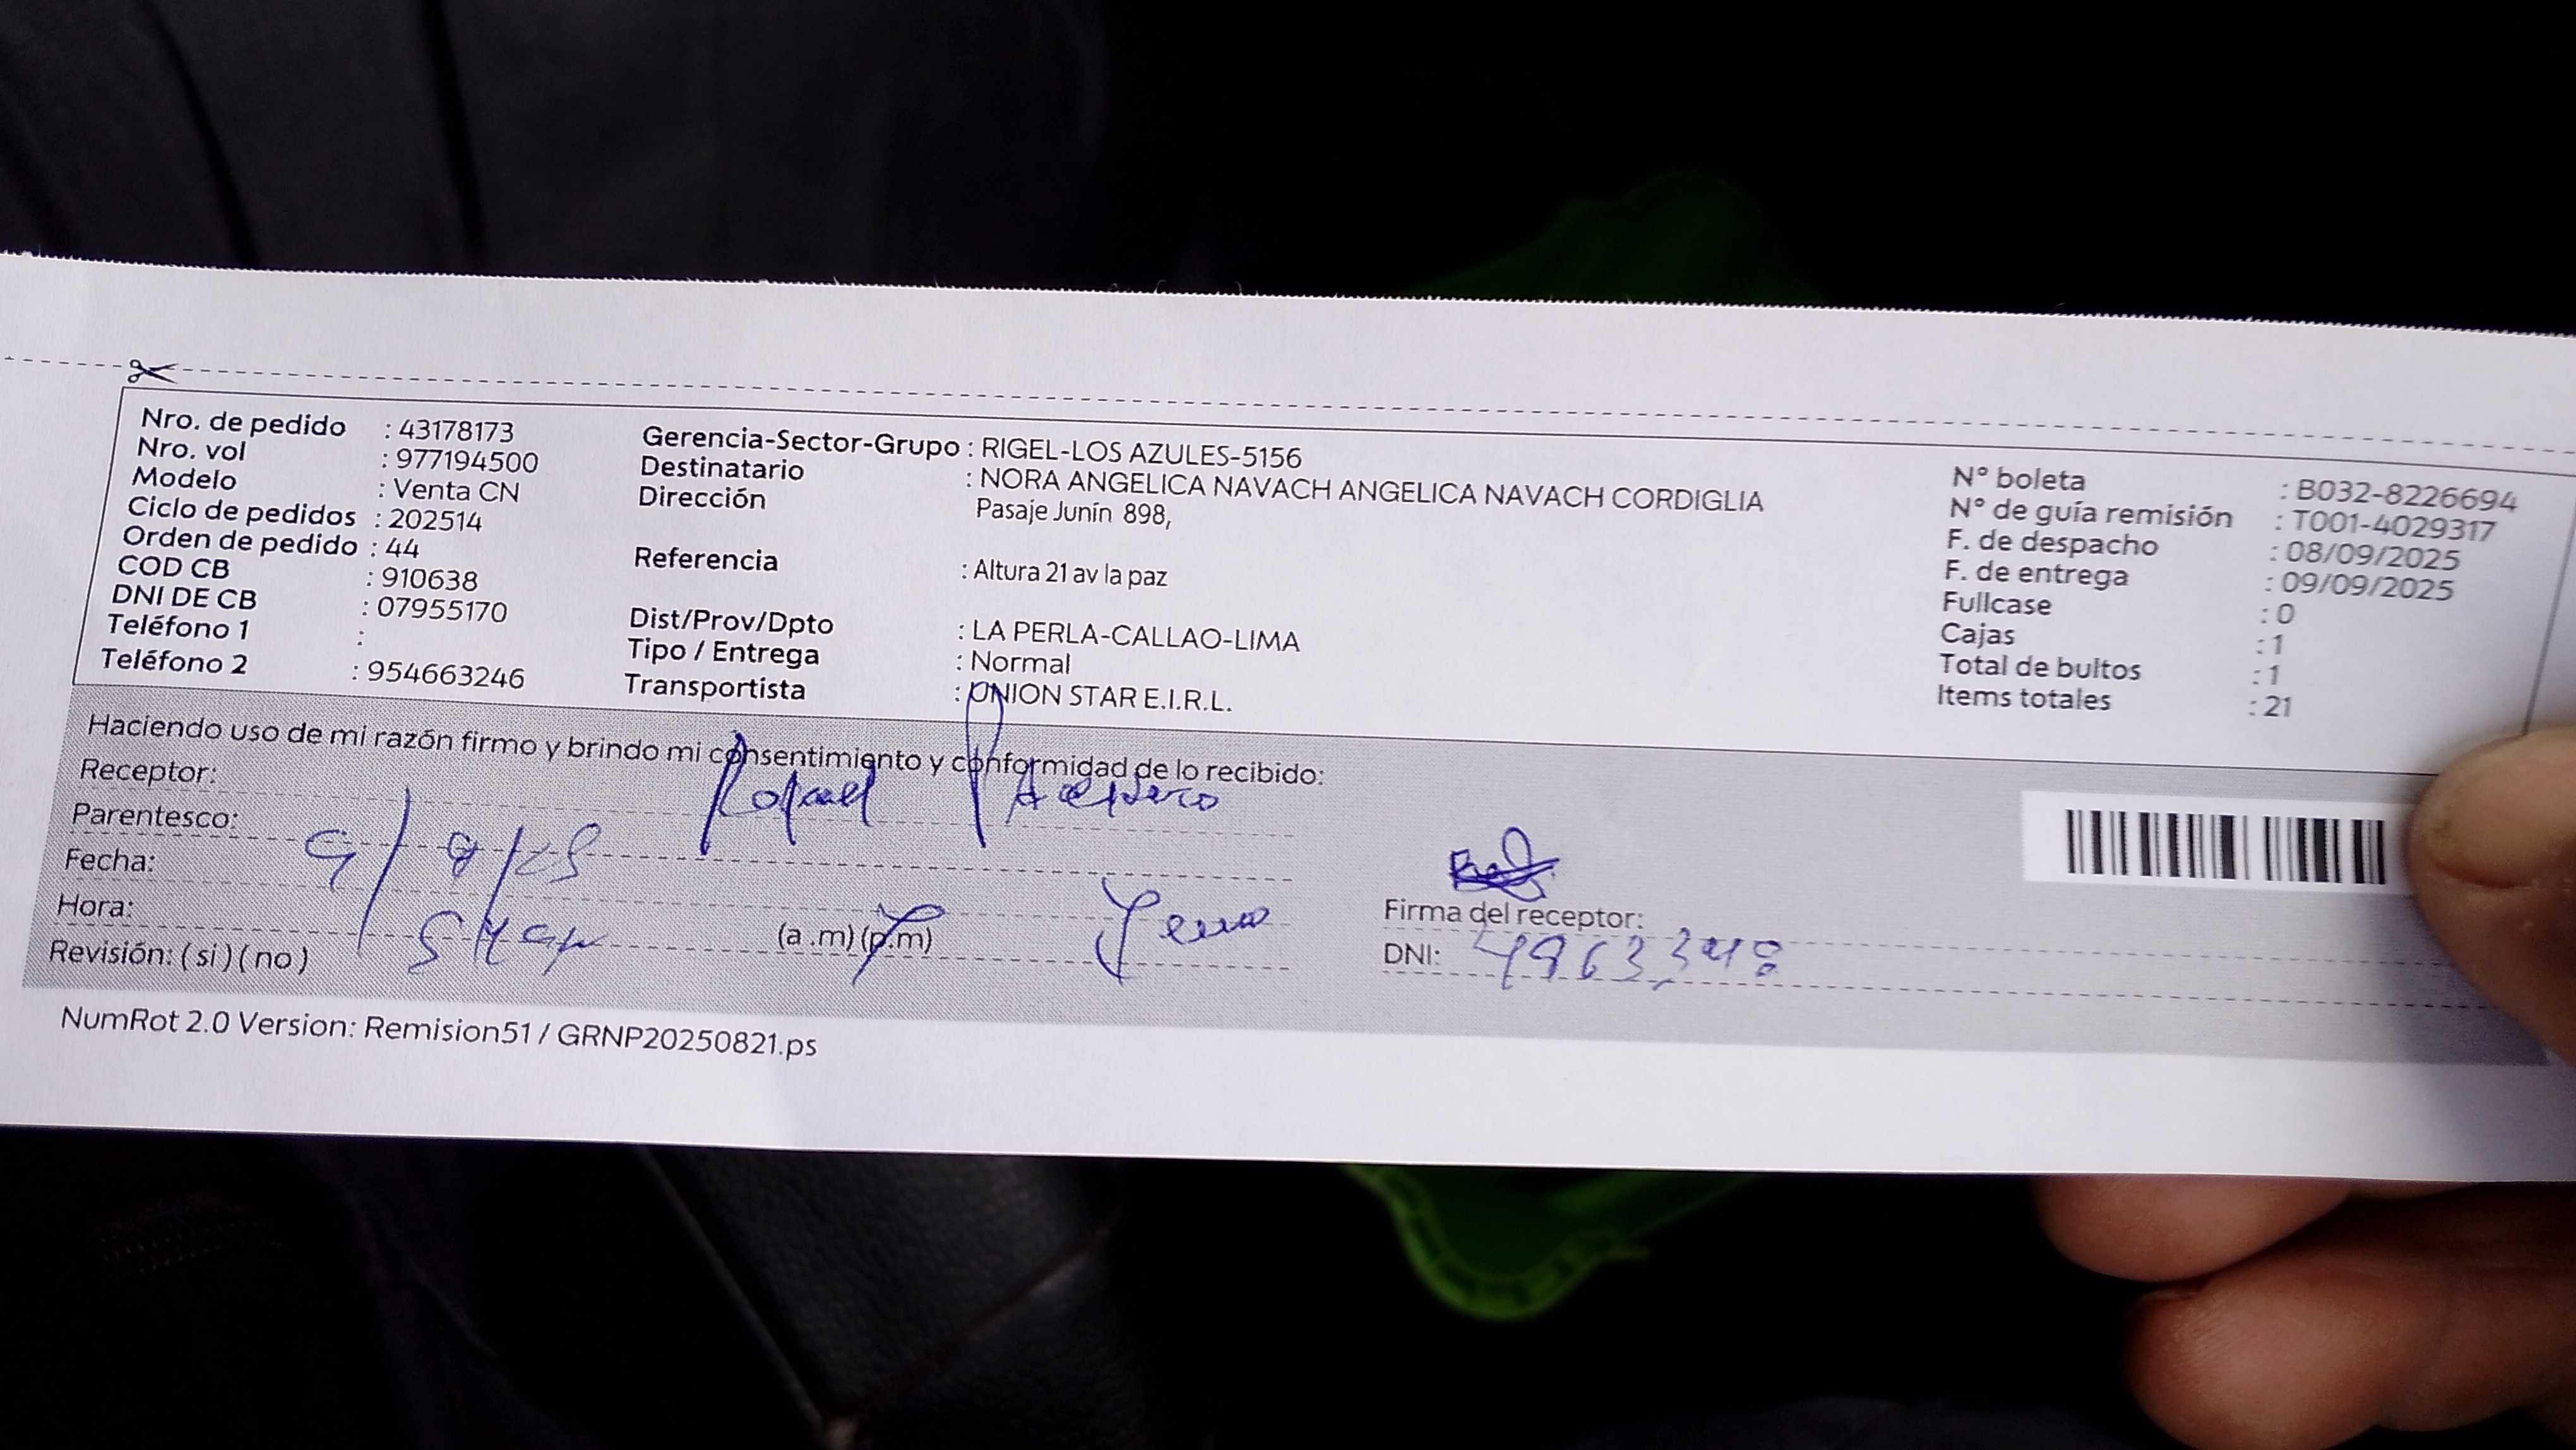 Nro. de pedido : 43178173
Nro. vol : 977194500
Modelo : Venta CN
Ciclo de pedidos : 202514
Orden de pedido : 44
COD CB : 910638
DNI DE CB : 07955170
Teléfono 1 :
Teléfono 2 : 954663246
Gerencia-Sector-Grupo : RIGEL-LOS AZULES-5156
Destinatario : NORA ANGELICA NAVACH ANGELICA NAVACH CORDIGLIA
Dirección Pasaje Junín 898,
Referencia : Altura 21 av la paz
Dist/Prov/Dpto : LA PERLA-CALLAO-LIMA
Tipo / Entrega : Normal
Transportista : UNION STAR E.I.R.L.
N° boleta : B032-8226694
N° de guía remisión : T001-4029317
F. de despacho : 08/09/2025
F. de entrega : 09/09/2025
Fullcase : 0
Cajas : 1
Total de bultos : 1
Items totales : 21
Haciendo uso de mi razón firmo y brindo mi consentimiento y conformidad de lo recibido:
Receptor: Rafael
Parentesco:
Fecha:
Hora: (a .m) (p.m)
Revisión: ( si ) ( no )
Firma del receptor:
DNI:
NumRot 2.0 Version: Remision51 / GRNP20250821.ps